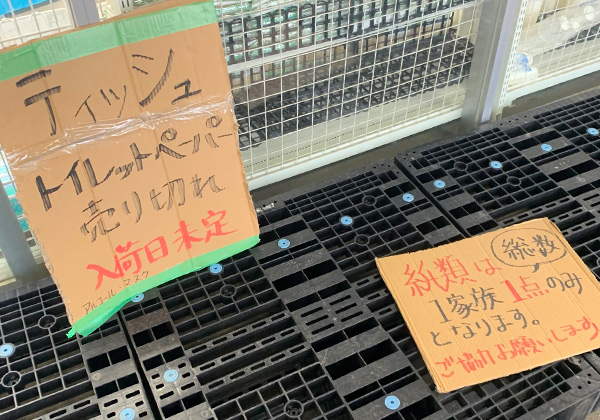 ティッシュ
トイレットペーパー
売り切れ
入荷日未定
アルコール・マスク
紙類は
総数
1家族1点のみ
となります。
ご協力お願いします